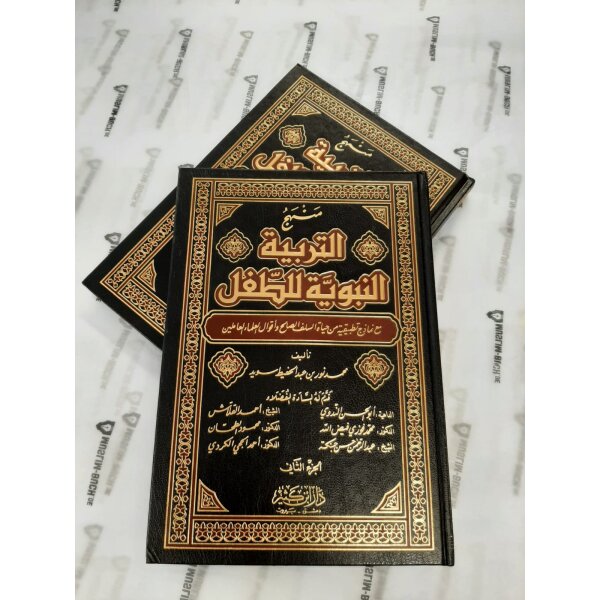 منهج
التربية
النبوية للطفل
مع نماذج تطبيقية من حياة السلف الصالح وأقوال العلماء العاملين
تأليف
محمد نور بن عبد الحفيظ سويد
قدم له السادة الفضلاء
الداعية: أبو الحسن الندوي الشيخ: أحمد القلاش
الدكتور: محمد فوزي فيض الله الدكتور: محمود الطحان
الشيخ: عبد الرحمن حسن حبنكة الدكتور: أحمد الحجي الكردي
الجزء الثاني
دار ابن كثير
دمشق - بيروت
منهج
MUSLIM-BUCH.DE